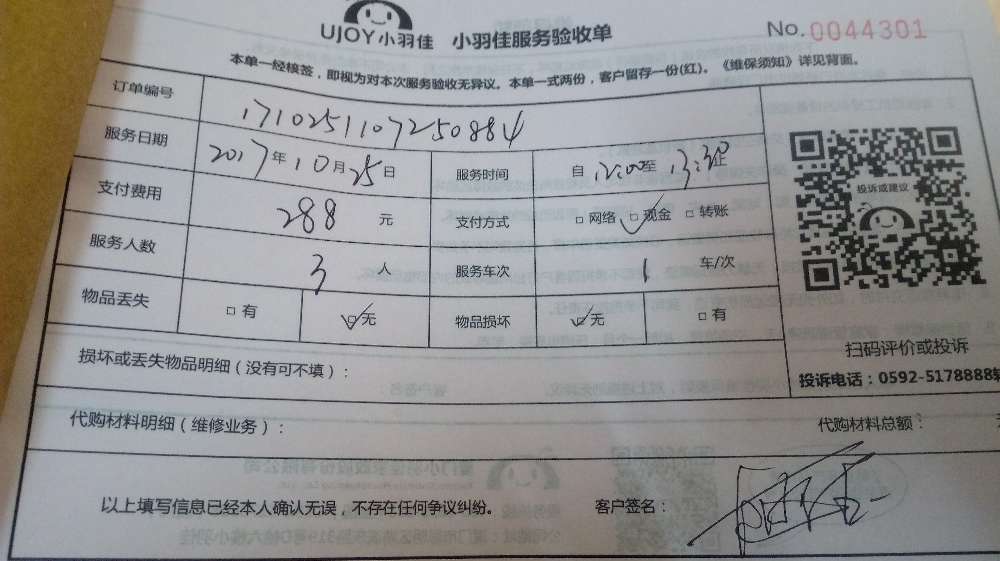 UJOY小羽佳 小羽佳服务验收单 No.0044301
本单一经核签，即视为对本次服务验收无异议。本单一式两份，客户留存一份(红)。《维保须知》详见背面。
订单编号 1710251107250884
服务日期 2017年10月25日 服务时间 自12:00至13:30止
支付费用 288 元 支付方式 □网络 ☑现金 □转账
服务人数 3 人 服务车次 1 车/次
物品丢失 □有 ☑无 物品损坏 ☑无 □有
投诉或建议
扫码评价或投诉
投诉电话：0592-5178888转
损坏或丢失物品明细（没有可不填）：
代购材料明细（维修业务）： 代购材料总额：
以上填写信息已经本人确认无误，不存在任何争议纠纷。 客户签名：